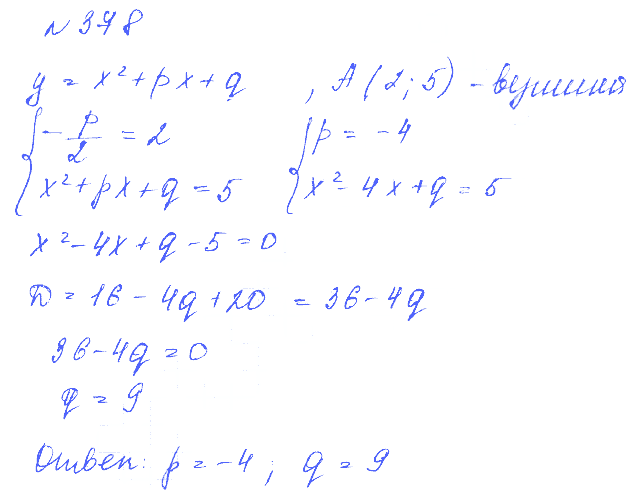 N 378
y = x² + px + q , A (2; 5) - вершина
{ -p/2 = 2 { p = -4
x² + px + q = 5 x² - 4x + q = 5
x² - 4x + q - 5 = 0
D = 16 - 4q + 20 = 36 - 4q
36 - 4q = 0
q = 9
Ответ: p = -4; q = 9